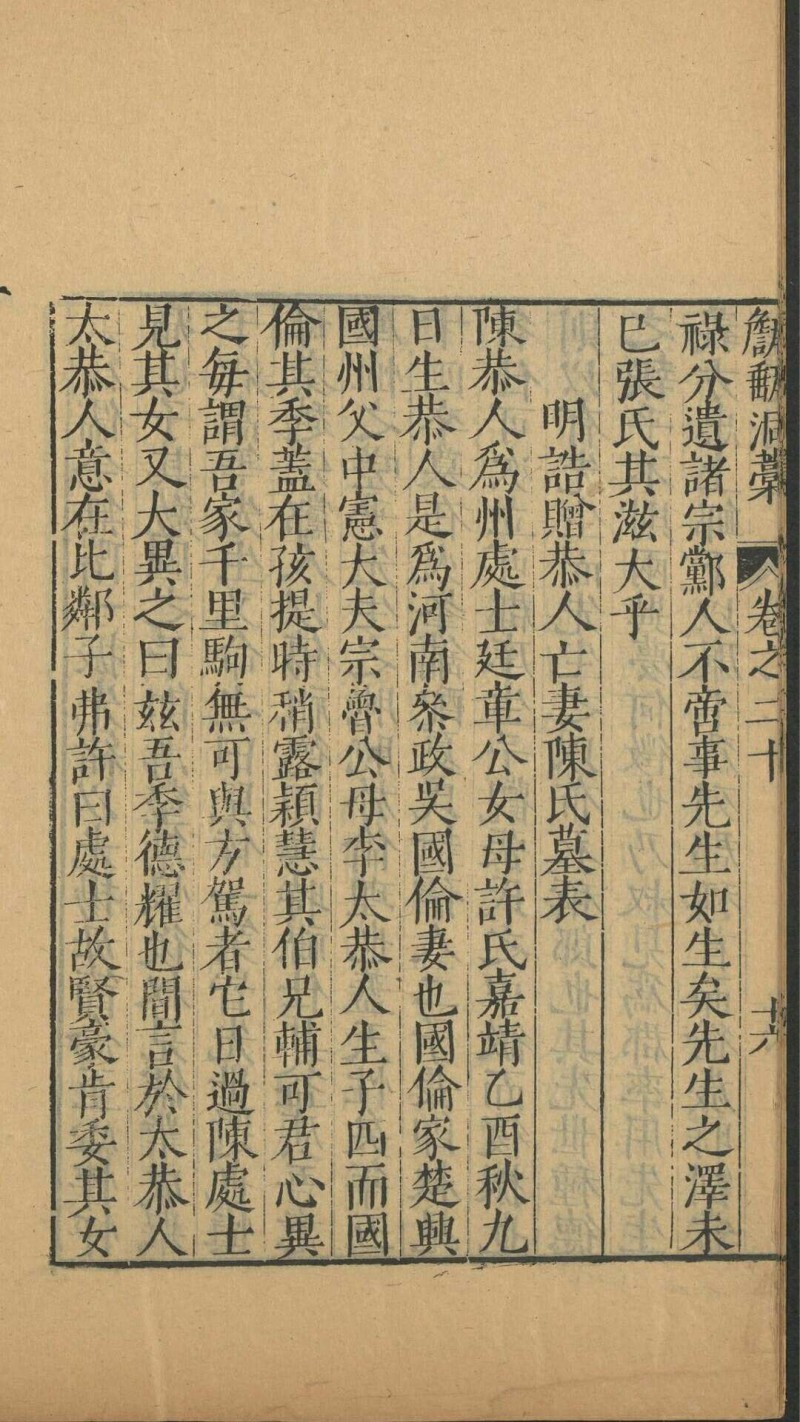 甔甀洞藁 卷之二十 十六
祿分遺諸宗鄰人不啻事先生如生矣先生之澤未
已張氏其滋大乎
明誥贈恭人亡妻陳氏墓表
陳恭人爲州處士廷章公女母許氏嘉靖乙酉秋九
日生恭人是爲河南叅政吳國倫妻也國倫家楚興
國州父中憲大夫宗魯公母李太恭人生子四而國
倫其季蓋在孩提時稍露穎慧其伯兄輔可君心異
之每謂吾家千里駒無可與方駕者它日過陳處士
見其女又大異之曰玆吾季德耀也間言於太恭人
太恭人意在比鄰子弗許曰處士故賢豪肯委其女